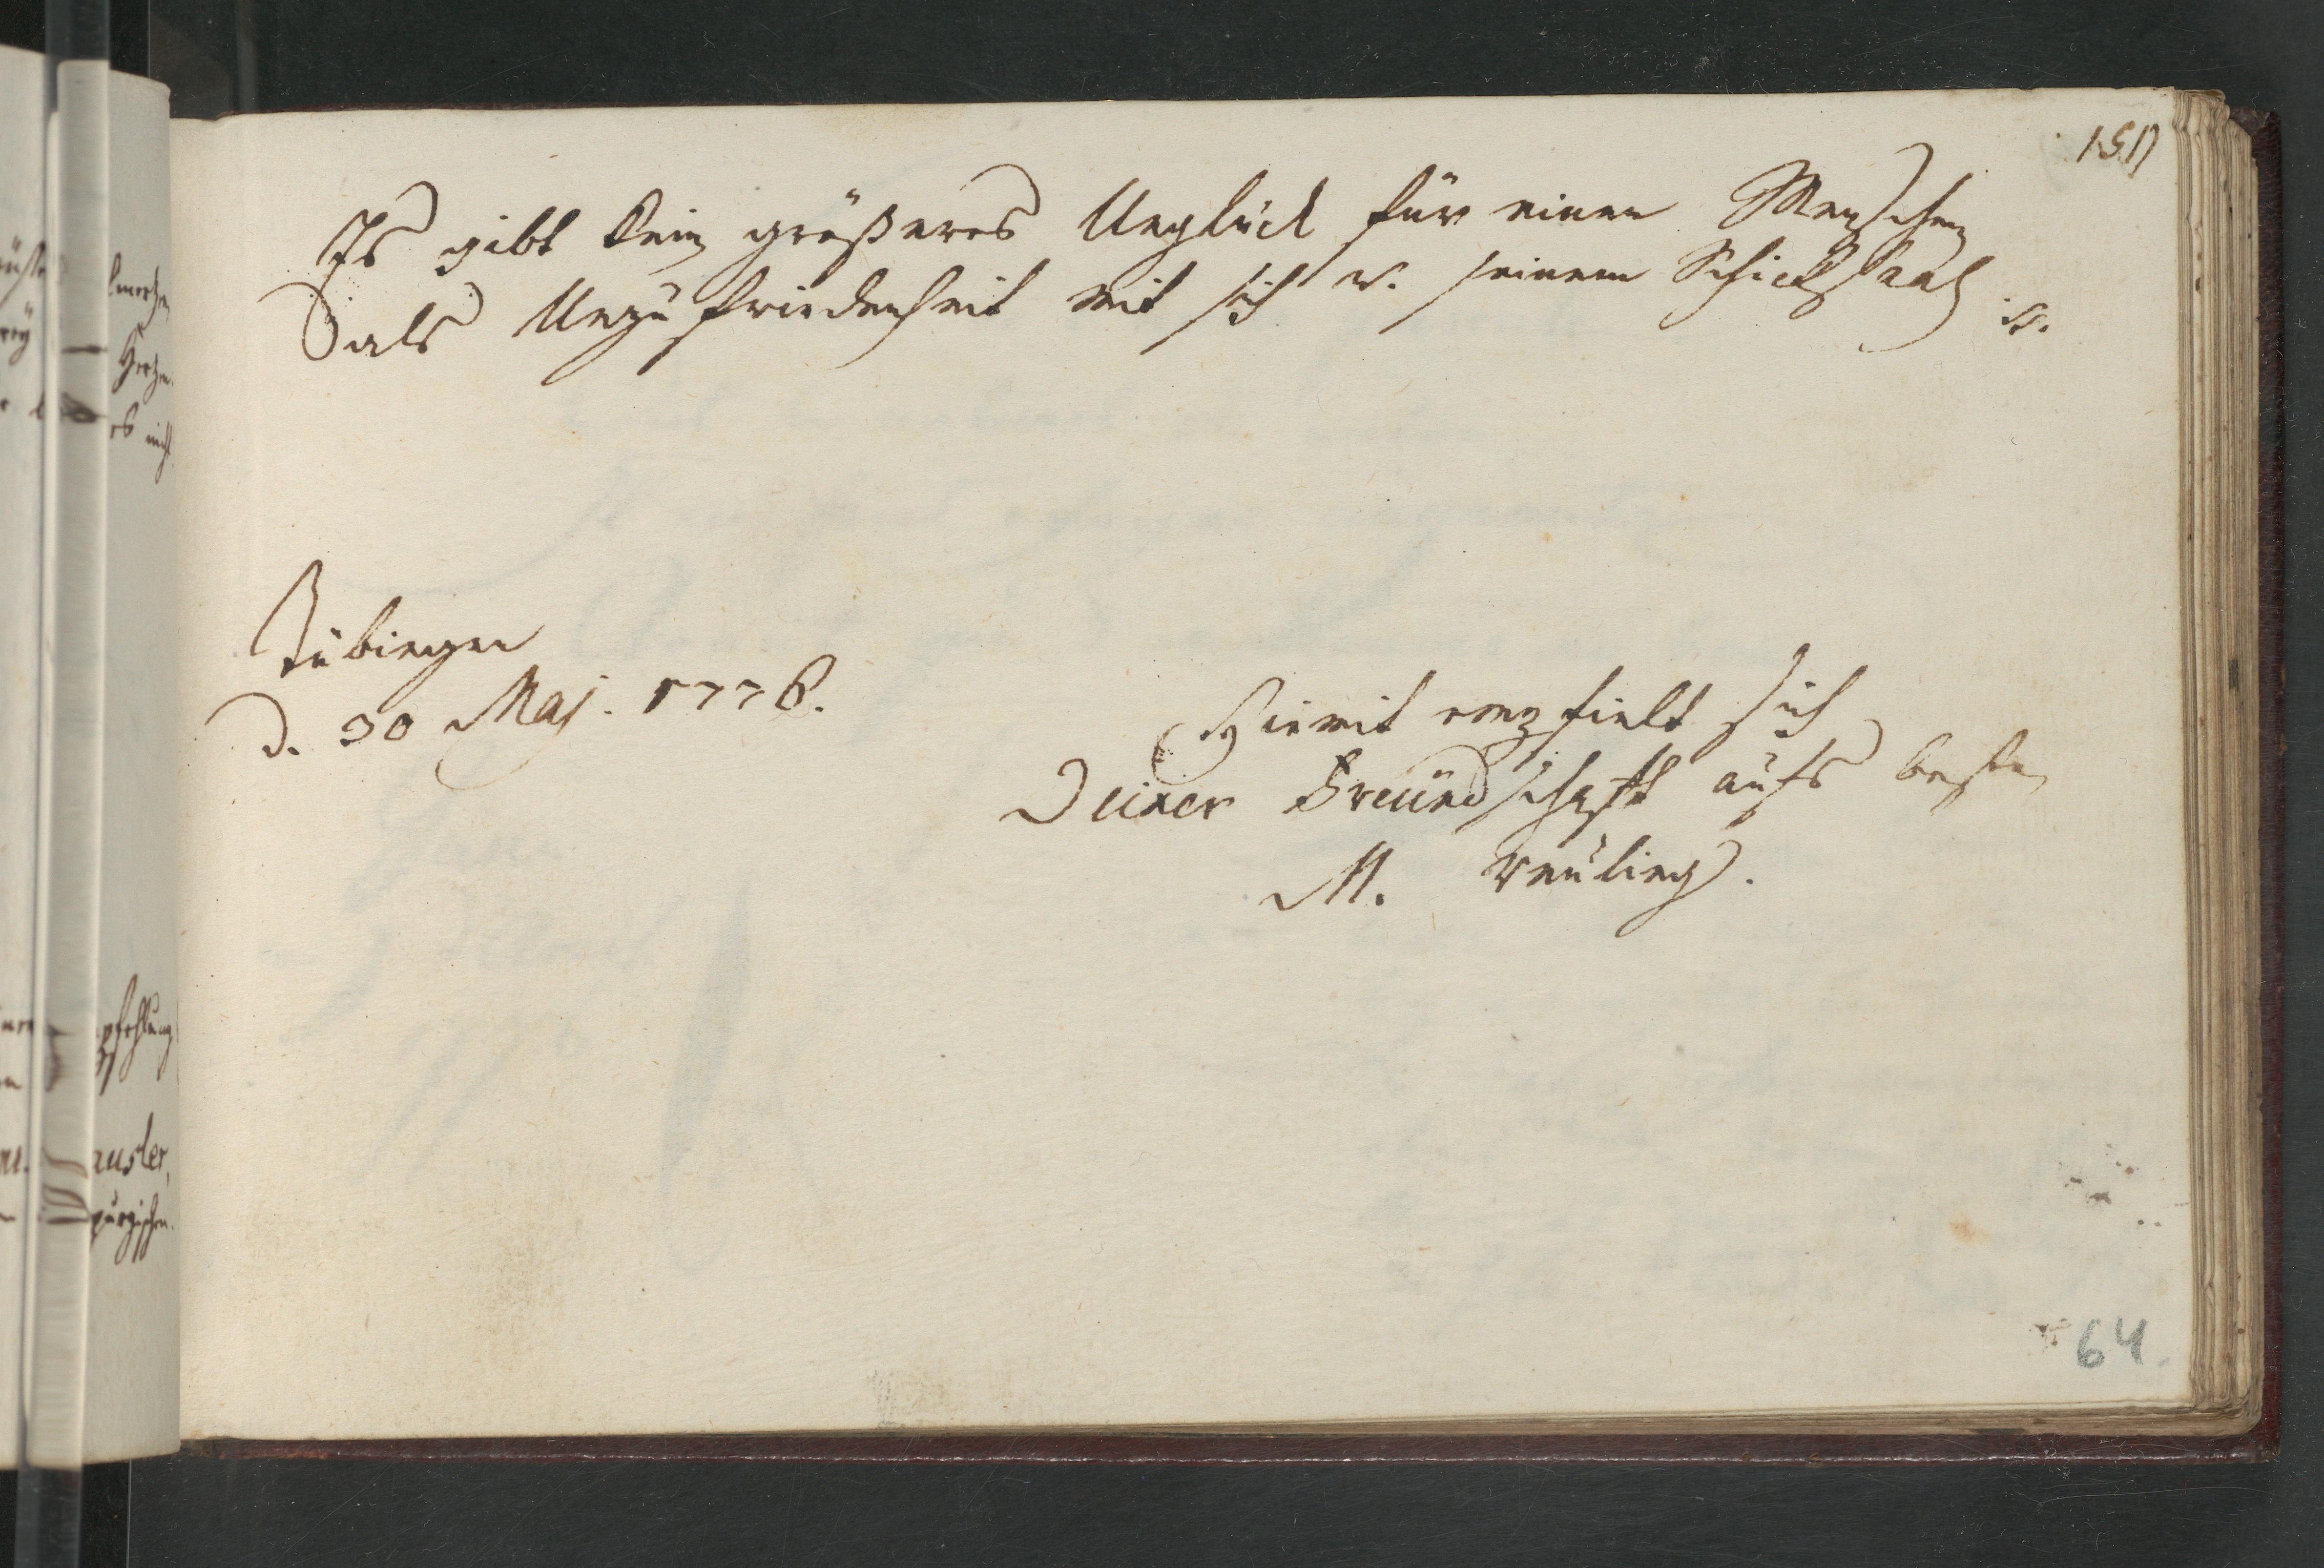 151
Es gibt kein größeres Unglück für einen Menschen
als Unzufriedenheit mit sich u. seinem Schicksaal
Tübingen
d. 30 Maj. 1776.
Hiemit empfielt sich
Deiner Freündschafft aufs beste
M. Reuling.
64